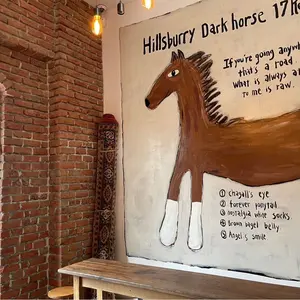 Hillsburry Dark horse 17
If you're going anywhere
that's a road.
What is always a
to me is raw.
① chagall's eye
② forever ponytail
③ nostalgia white socks
④ Brown bagel belly
⑤ Angel's smile